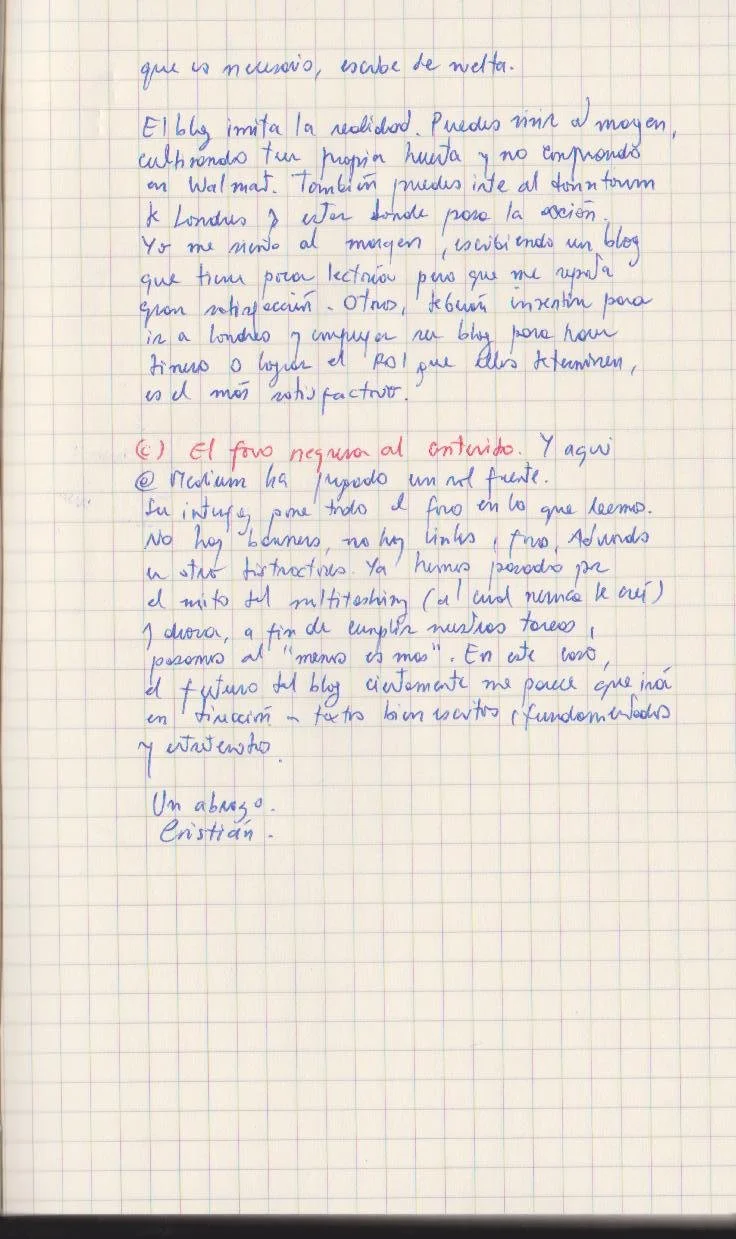 que es necesario, escribe de vuelta.
El blog imita la realidad. Puedes vivir al margen,
cultivando tu propia huerta y no comprando
en Walmart. También puedes irte al downtown
de Londres y estar donde pasa la acción.
Yo me siento al margen, escribiendo un blog
que tiene poca lectoría pero que me reporta
gran satisfacción. Otros, deberán invertir para
ir a Londres y empujar su blog para hacer
dinero o lograr el ROI que ellos determinen,
es el más satisfactorio.
(c) El foco regresa al contenido. Y aquí
@Medium ha jugado un rol fuerte.
Su interfaz pone todo el foco en lo que leemos.
No hay banners, no hay links, fotos, Adwords
u otro distractores. Ya hemos pasado por
el mito del multitasking (al cual nunca le creí)
y ahora, a fin de cumplir nuestras tareas,
pasamos al "menos es mas". En este caso,
el futuro del blog ciertamente me parece que irá
en dirección a textos bien escritos, fundamentados
y
Un abrazo.
Cristián.